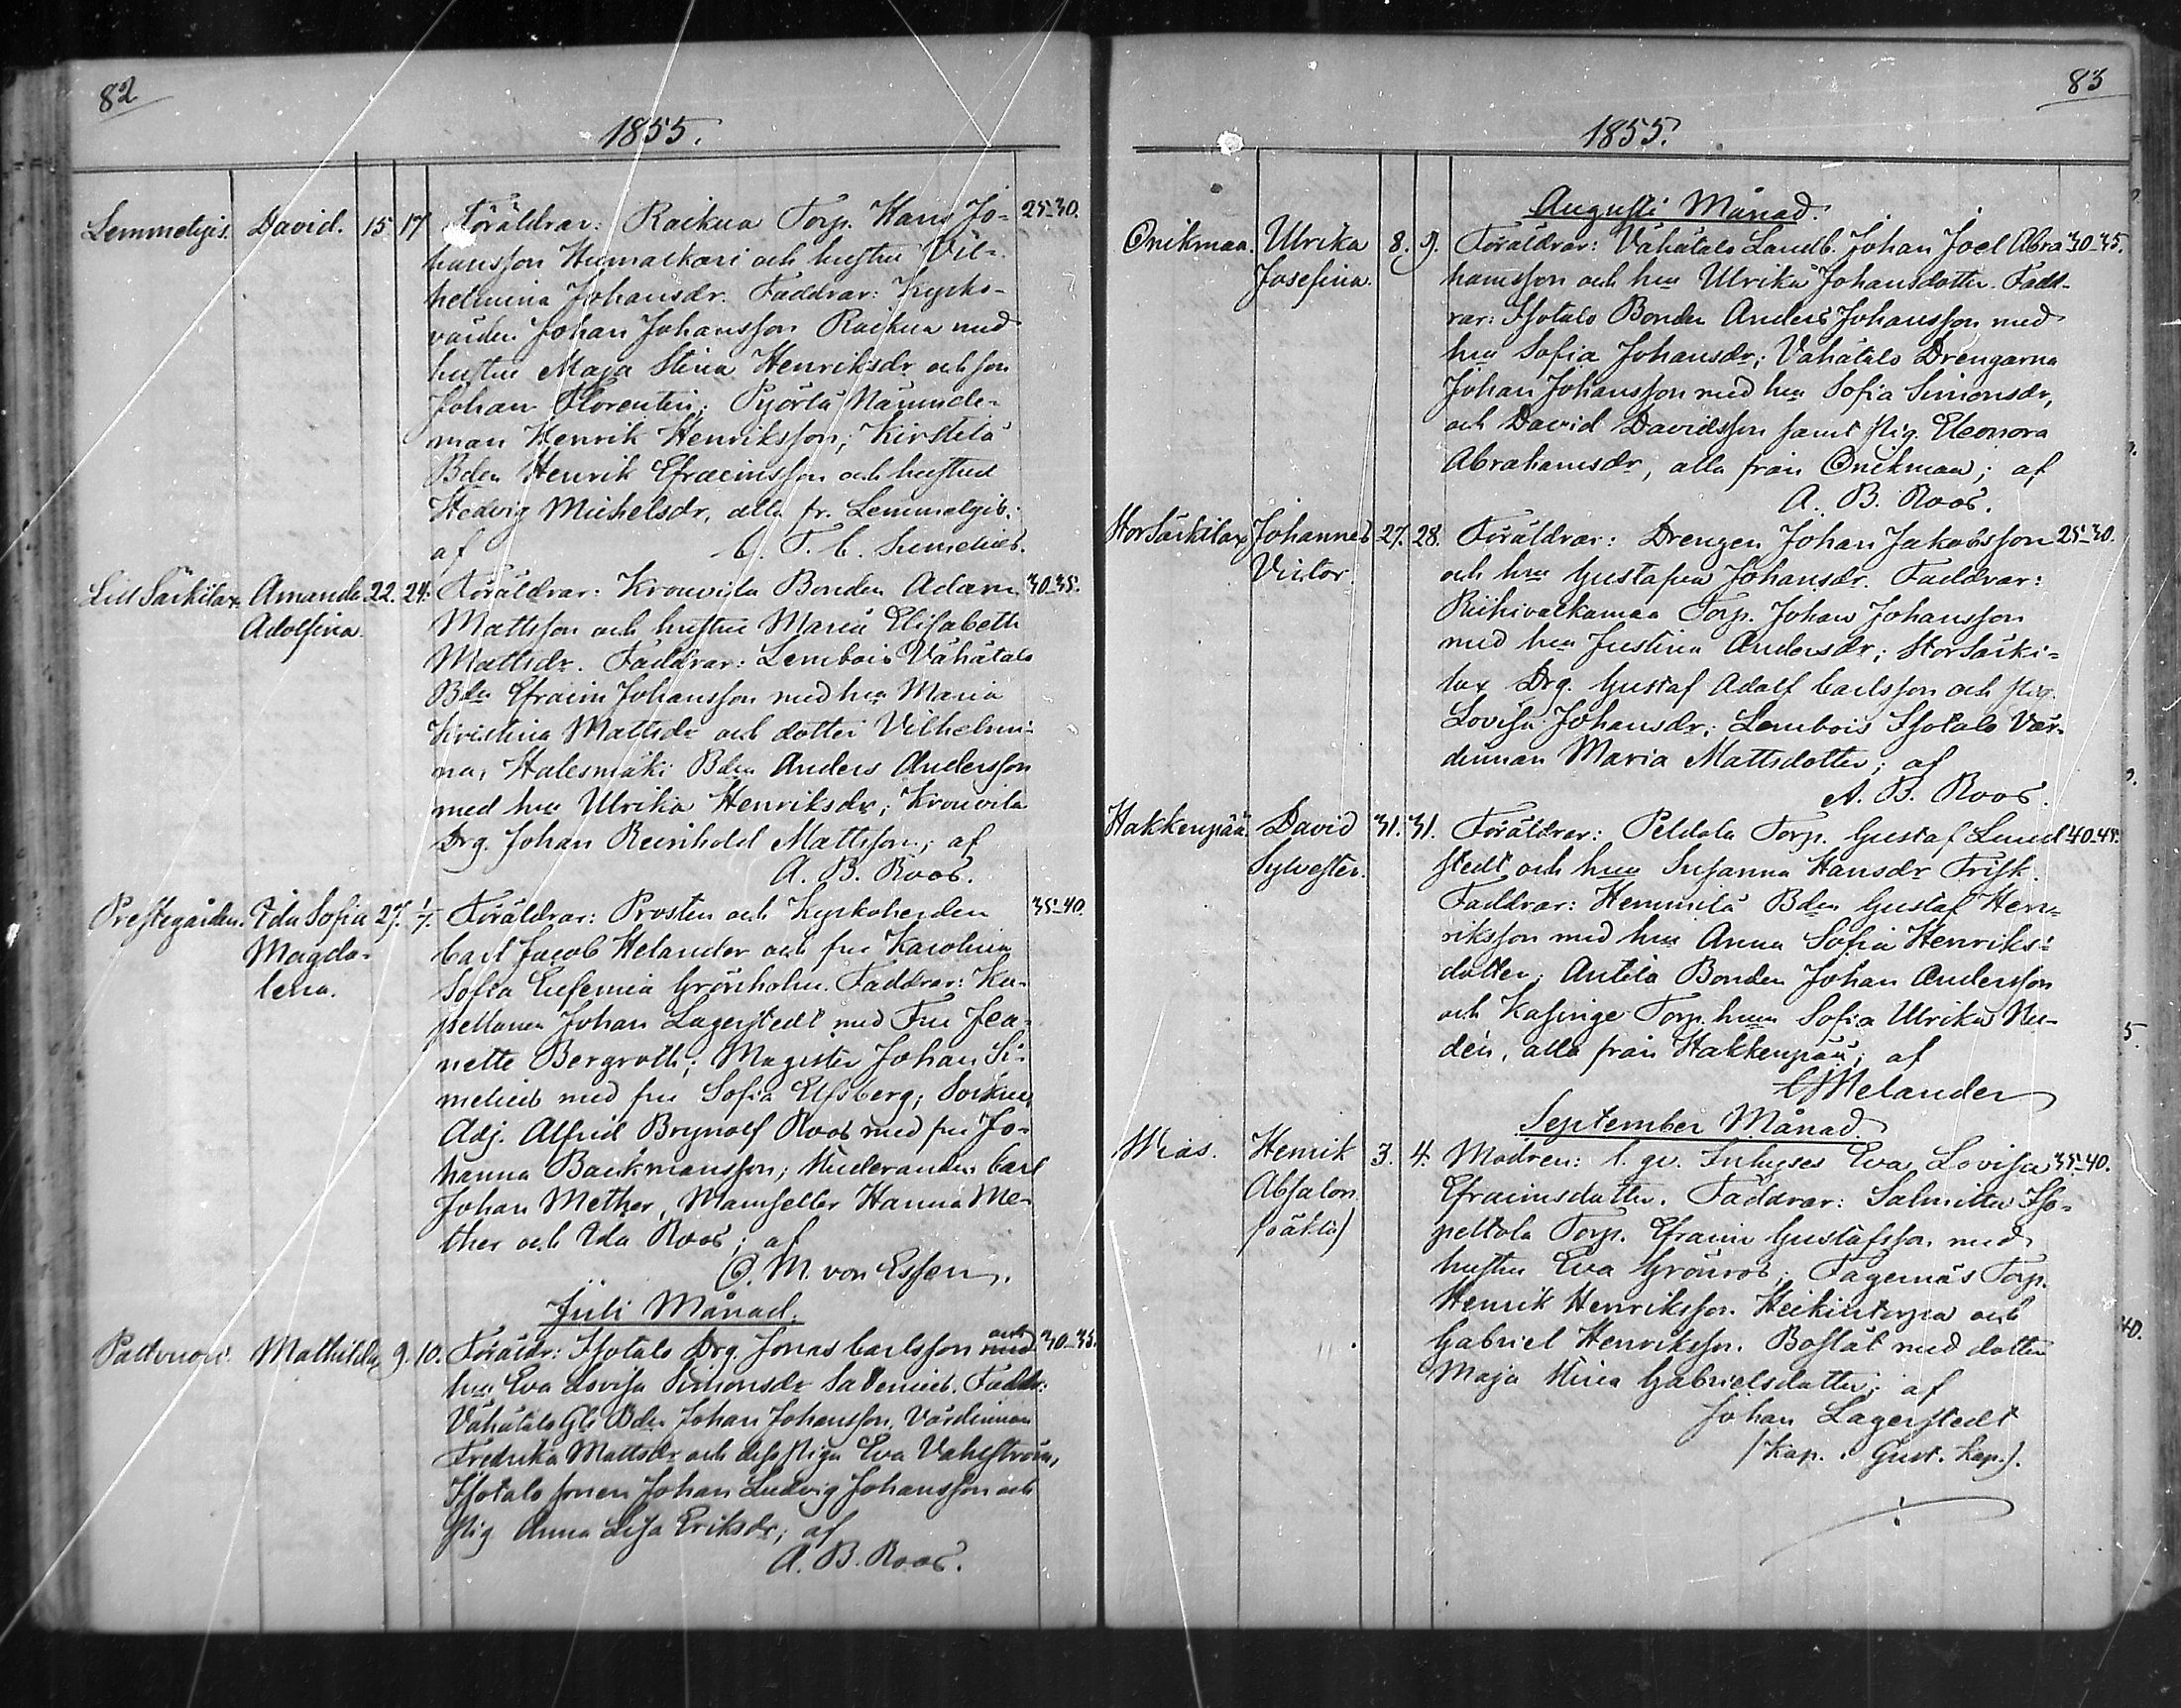 82
1855.
Lemmetyis. David. 15. 17. Föräldrar: Raikua Torp. Hans Jo- 25-30.
hansson Humalkari och hustru Vil-
helmina Johansdr. Faddrar: Kyrko-
värden Johan Johansson Raikua med
hustru Maja Stina Henriksdr och son
Johan Florentin; Pyörlä Nämnde-
man Henrik Henriksson; Kirstelä
Bden Henrik Efraimsson och hustru
Hedvig Michelsdr, alla fr. Lemmetyis;
af C. F. C. Sumelius.
Lill Särkilax. Amanda 22. 24. Föräldrar: Krouvila Bonden Adam 30-35.
Adolfina. Mattsson och hustru Maria Elisabeth
Mattsdr. Faddrar: Lembois Vähätalo
Bden Efraim Johansson med hu Maria
Kristina Mattsdr och dotter Vilhelmi-
na, Halesmäki Bden Anders Andersson
med hu Ulrika Henriksdr; Krouvila
Drg. Johan Reinhold Mattsson; af
A. B. Roos.
Prestegården. Ida Sofia 27. 1/7. Föräldrar: Prosten och Kyrkoherden 35-40.
Magda- Carl Jacob Helander och fru Karolina
lena. Sofia Eufemia Grönholm. Faddrar: Ka-
pellanen Johan Lagerstedt med Fru Jea-
nette Bergroth; Magister Johan Si-
melius med fru Sofia Elfsberg; Socknes
Adj. Alfrid Brynolf Roos med fru Jo-
hanna Backmansson; Studeranden Carl
Johan Mether, Mamseller Hanna Me-
ther och Ida Roos; af
C. M. von Essen.
Juli Månad.
Pattvuori. Mathilda 9. 10. Föräldr: Isotalo Drg Jonas Carlsson och 30-35.
hu Eva Lovisa Simonsdr Salenius. Faddr:
Vähätalo Gle Bden Johan Johansson, Värdinnan
Fredrika Mattsdr och dess piga Eva Vahlström,
Isotalo sonen Johan Ludvig Johansson och
pig Anna Lisa Eriksdr; af
A. B. Roos.
83
1855.
Augusti Månad.
Onikmaa. Ulrika 8. 9. Föräldrar: Vähätalo Landb. Johan Joel Abra- 30-35.
Josefina. hamsson och hu Ulrika Johansdotter. Fadd-
rar: Isotalo Bonden Anders Johansson med
hu Sofia Johansdr; Vähätalo Drengarna
Johan Johansson med hu Sofia Simonsdr,
och David Davidsson samt pig. Eleonora
Abrahamsdr, alla från Onikmaa; af
A. B. Roos.
Stor Särkilax Johannes 27. 28. Föräldrar: Drengen Johan Jakobsson 25-30.
Victor. och hu Gustafva Johansdr. Faddrar:
Riihivalkamaa Torp. Johan Johansson
med hu Justina Andersdr; Stor Särki-
lax Drg. Gustaf Adolf Carlsson och pig.
Lovisa Johansdr; Lembois Isotalo Vär-
dinnan Maria Mattsdotter; af
A. B. Roos.
Hakkenpää. David 31. 31. Föräldrar: Peldola Torp. Gustaf Lund- 40-45.
Sylvester. stedt och hu Susanna Hansdr Frisk.
Faddrar: Hemmilä Bden Gustaf Hen-
riksson med hu Anna Sofia Henriks-
dotter; Antila Bonden Johan Andersson
och Kasinge Torp. hu Sofia Ulrika Nu-
dén, alla från Hakkenpää; af
CJHelander
September Månad.
Wias. Henrik 3. 4. Modren: l. qv. Inhyses Eva Lovisa 35-40.
Absalon Efraimsdotter. Faddrar: Salmittu Iso-
(oäkta) peltola Torp. Efraim Gustafsson med
hustru Eva Grönroos; Fagernäs Torp.
Henrik Henriksson Heikintorpa och
Gabriel Henriksson Boställ med dotter
Maja Stina Gabrielsdotter; af
Johan Lagerstedt
(Kap. i Gust. Kap.).
5.
40.